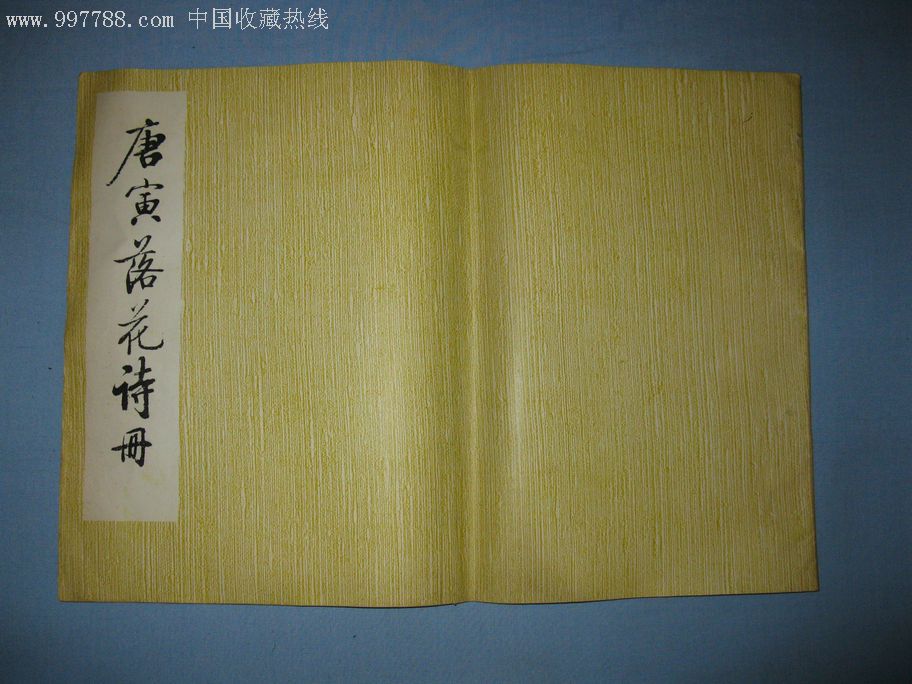 www.997788.com 中国收藏热线
唐寅落花诗册